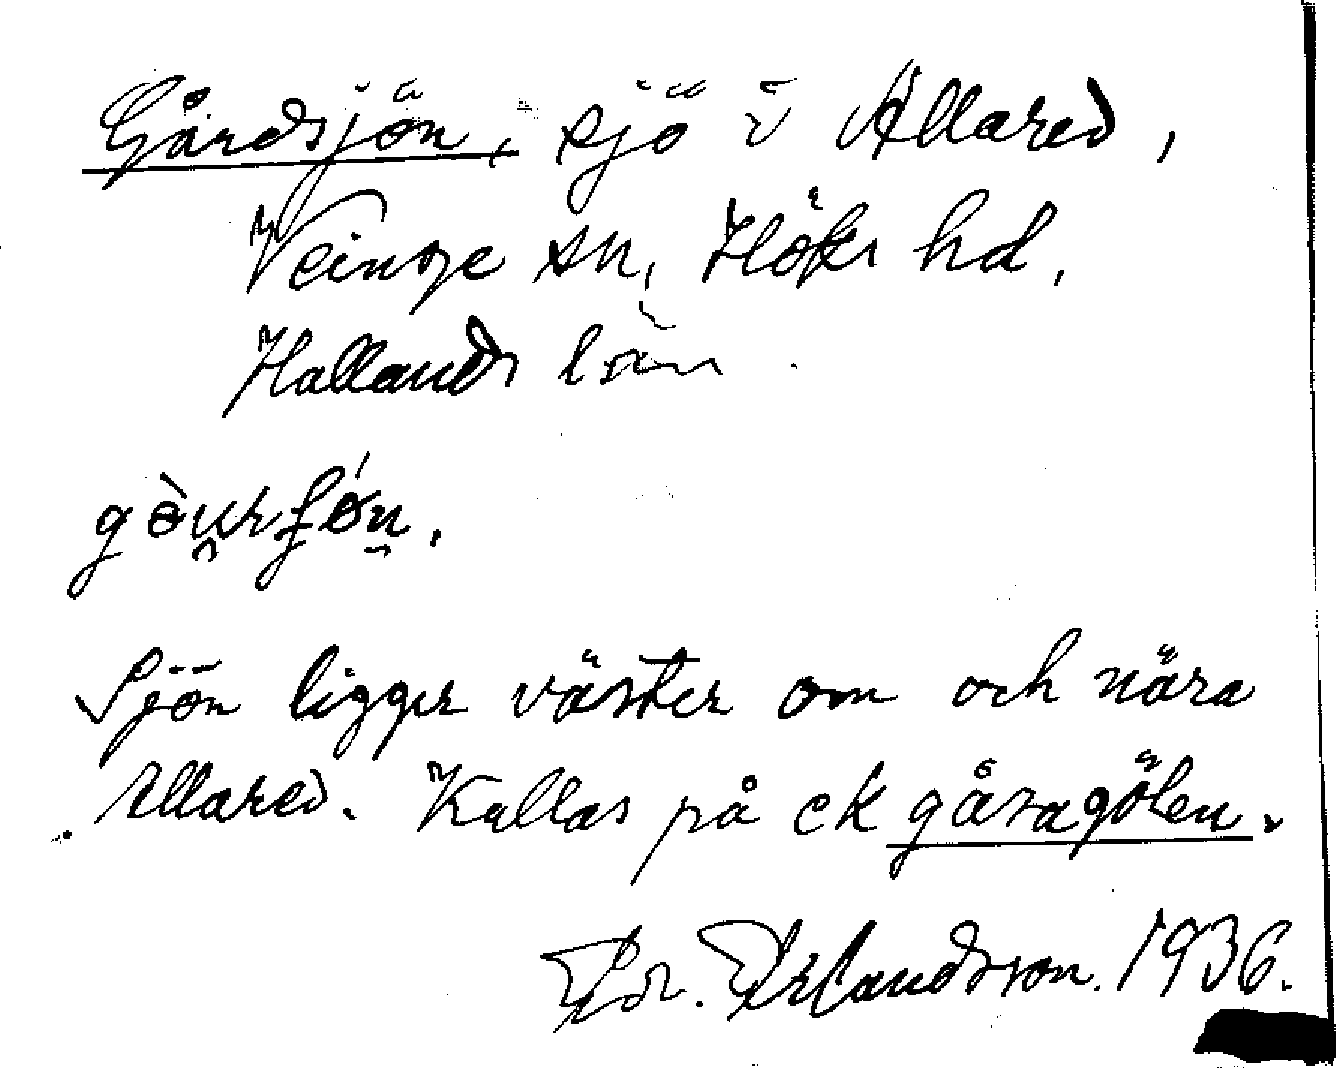 Gårdsjön, sjö i Allared,
Veinge sn, Höks hd,
Hallands län.
Sjön ligger väster om och nära
Allared. Kallas på ek gåragölen.
Fr. Erlandsson. 1936.